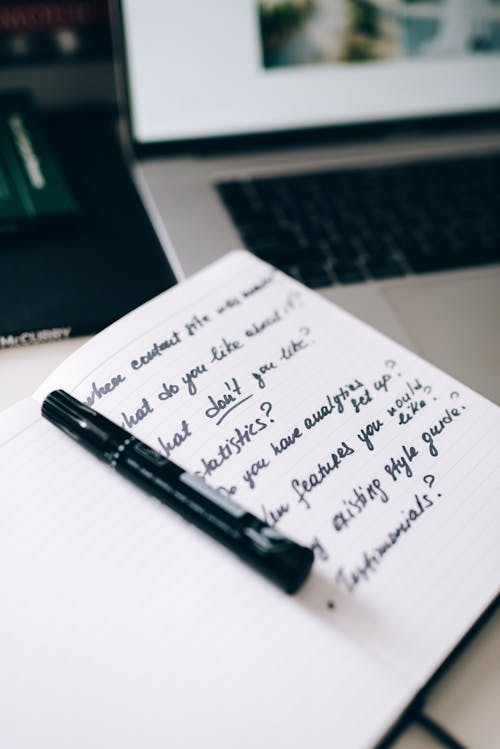 McCURBY
where content
What do you like about it?
what don't you like?
statistics?
Do you have analytics set up?
features you would like?
existing style guide?
Testimonials?